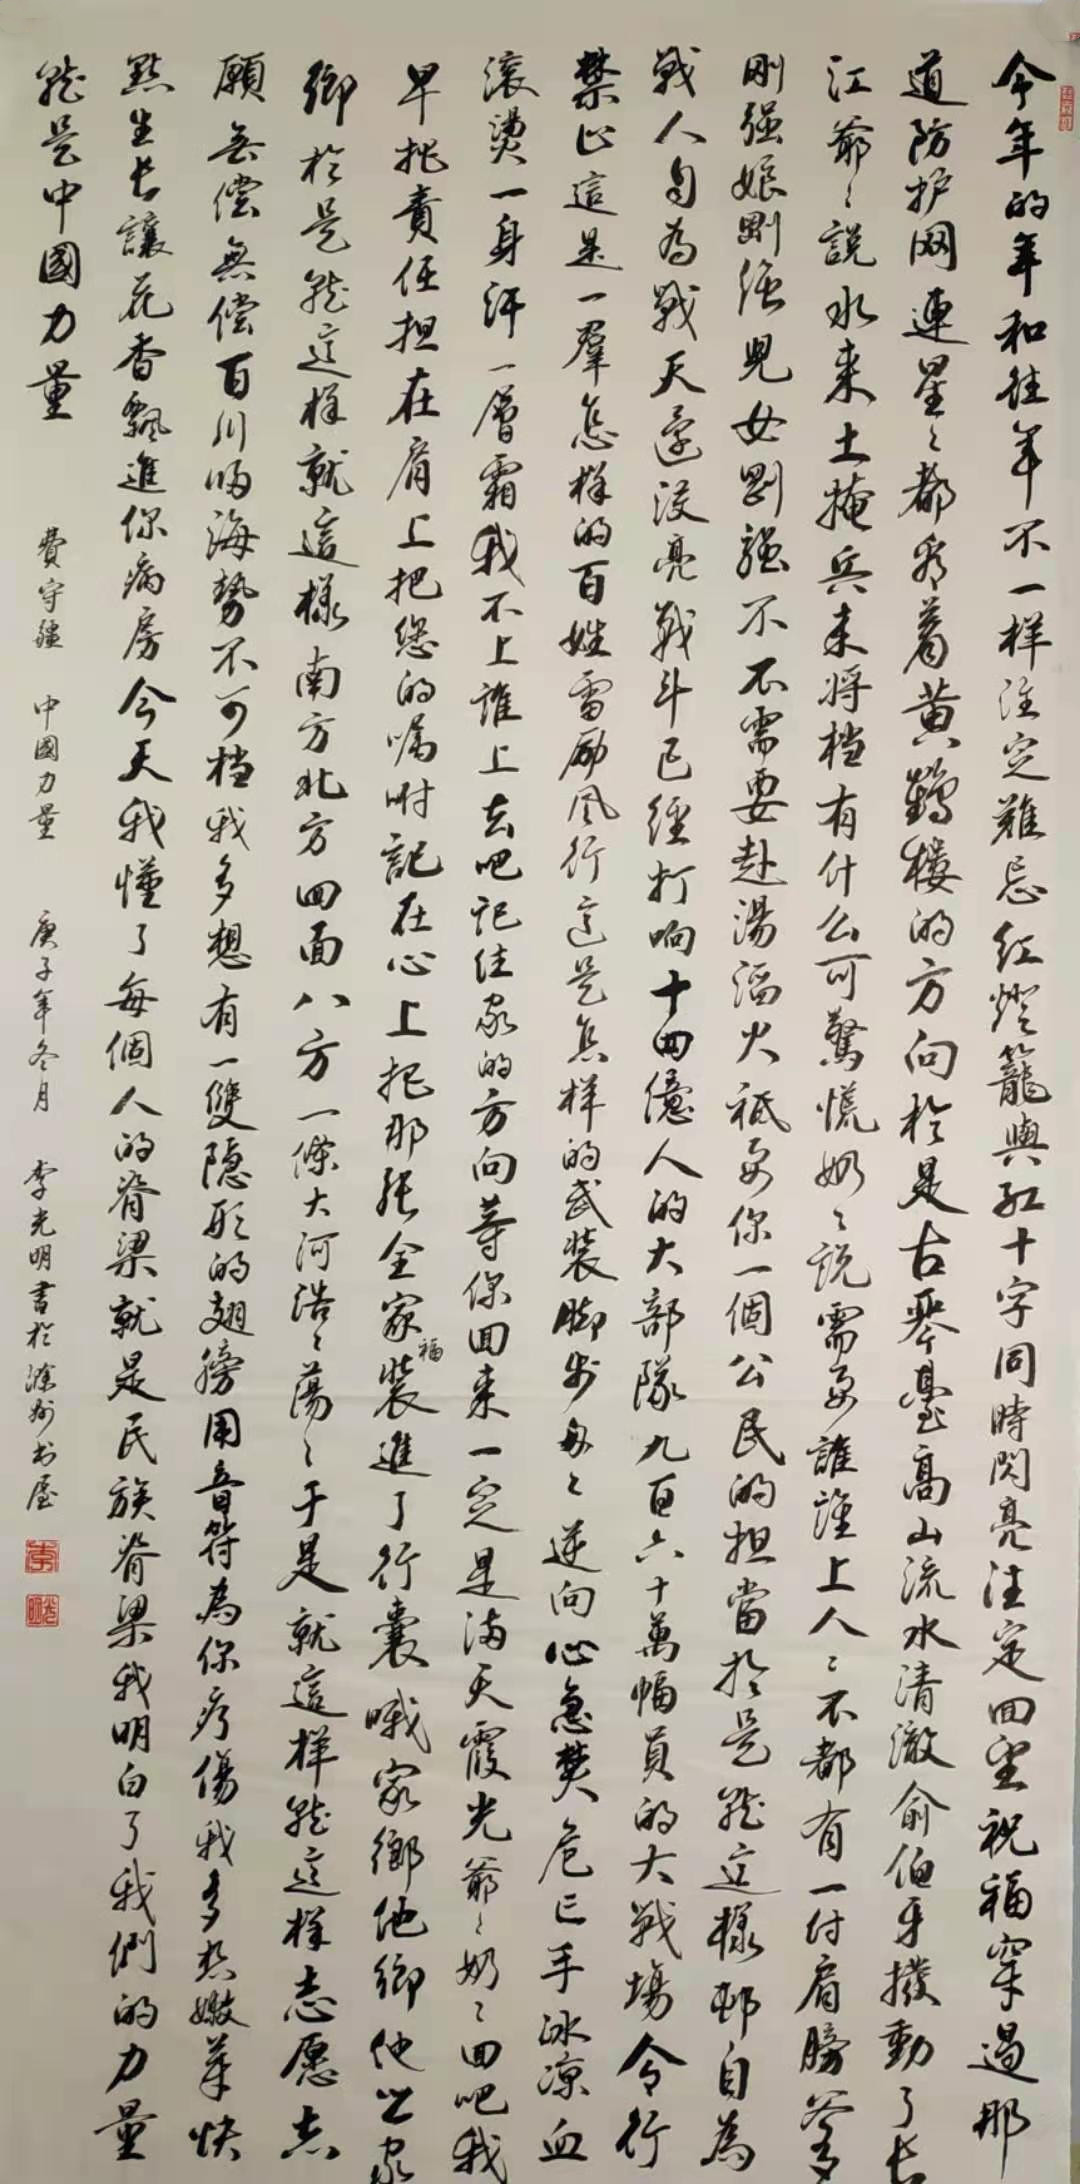 今年的年和往年不一样注定難忘红燈籠與红十字同時閃亮注定回望祝福穿過那
道防护网連星々都看着黄鶴樓的方向於是古琴臺高山流水清澈俞伯牙撥動了长
江爺々説水来土掩兵来将档有什么可驚慌奶々说需要誰誰上人々不都有一付肩膀爹
剛强娘剛强児女剛强不不需要赴湯滔火衹要你一個公民的担當於是就这樣邨自為
戰人自為戰天還没亮戰斗已經打响十四億人的大部隊九百六十萬幅員的大戰場令行
禁止這是一羣怎样的百姓雷厲风行这是怎样的武装脚步匆々逆向心急焚危亡手冰凉血
滚燙一身汗一層霜我不上誰上去吧记住家的方向等你回来一定是满天霞光爺々奶々回吧我
早把責任担在肩上把您的嘱咐記在心上把那張全家福装進了行囊哦家鄉他鄉他乡家
鄉於是就这样就這樣南方北方四面八方一條大河浩々蕩々于是就這样就这样志愿志
願無偿無偿百川归海勢不可档我多想有一雙隐形的翅膀用音符為你疗傷我多想嫩芽快
點生长讓花香飄進你病房今天我懂了每個人的脊梁就是民族脊梁我明白了我們的力量
就是中國力量
費守疆 中國力量 庚子年冬月 李光明書於滁州书屋